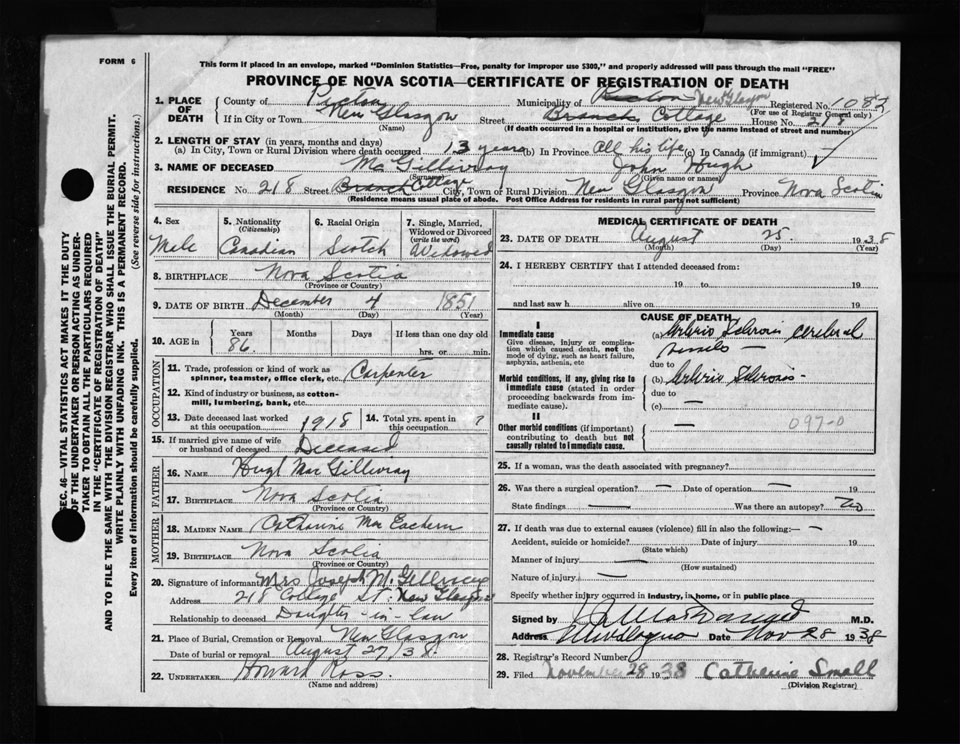 FORM 6
This form if placed in an envelope, marked "Dominion Statistics—Free, penalty for improper use $300," and properly addressed will pass through the mail "FREE"
PROVINCE OF NOVA SCOTIA—CERTIFICATE OF REGISTRATION OF DEATH
1. PLACE OF DEATH County of Pictou Municipality of Pictou New Glasgow Registered No. 1082
(For use of Registrar General only)
If in City or Town New Glasgow Street Branch Cottage House No. 218
(Name) (If death occurred in a hospital or institution, give the name instead of street and number)
2. LENGTH OF STAY (in years, months and days)
(a) In City, Town or Rural Division where death occurred 13 years (b) In Province All his life (c) In Canada (if immigrant) —
3. NAME OF DECEASED McGillivray John Hugh
(Surname) (Given name or names)
RESIDENCE No. 218 Street Branch College City, Town or Rural Division New Glasgow Province Nova Scotia
(Residence means usual place of abode. Post Office Address for residents in rural parts not sufficient)
4. Sex
Male
5. Nationality
(Citizenship)
Canadian
6. Racial Origin
Scotch
7. Single, Married, Widowed or Divorced
(write the word)
Widowed
8. BIRTHPLACE Nova Scotia
(Province or Country)
9. DATE OF BIRTH December 4 1851
(Month) (Day) (Year)
10. AGE in Years Months Days If less than one day old
86. hrs. or min.
OCCUPATION
11. Trade, profession or kind of work as
spinner, teamster, office clerk, etc. Carpenter
12. Kind of industry or business, as cotton-
mill, lumbering, bank, etc.
13. Date deceased last worked
at this occupation 1918
14. Total yrs. spent in
this occupation ?
15. If married give name of wife
or husband of deceased Deceased
FATHER
16. NAME Hugh MacGillivray
17. BIRTHPLACE Nova Scotia
(Province or Country)
MOTHER
18. MAIDEN NAME Catharine MacEachern
19. BIRTHPLACE Nova Scotia
(Province or Country)
20. Signature of informant Mrs Joseph McGillivray
Address 218 College St. New Glasgow
Relationship to deceased Daughter-in-law
21. Place of Burial, Cremation or Removal New Glasgow
Date of burial or removal August 27/38.
22. UNDERTAKER Howard Ross.
(Name and address)
MEDICAL CERTIFICATE OF DEATH
23. DATE OF DEATH August 25. 1938
(Month) (Day) (Year)
24. I HEREBY CERTIFY that I attended deceased from:
19 to 19
and last saw h alive on 19
CAUSE OF DEATH
I
Immediate cause
Give disease, injury or complica-
tion which caused death, not the
mode of dying, such as heart failure,
asphyxia, asthenia, etc
(a) Arterio Sclerosis cerebral
due to
Morbid conditions, if any, giving rise to
immediate cause (stated in order
proceeding backwards from im-
mediate cause).
(b) Arterio Sclerosis
due to
(c) —
II
Other morbid conditions (if important)
contributing to death but not
causally related to immediate cause.
—
097-0
25. If a woman, was the death associated with pregnancy?
26. Was there a surgical operation? — Date of operation — 19
State findings — Was there an autopsy? No
27. If death was due to external causes (violence) fill in also the following:— —
Accident, suicide or homicide? Date of injury 19
(State which)
Manner of injury —
(How sustained)
Nature of injury —
Specify whether injury occurred in industry, in home, or in public place
Signed by MacDougall M.D.
Address Date Nov 28 1938
28. Registrar's Record Number
29. Filed November 28 1938 Catherine Small
(Division Registrar)
SEC. 46—VITAL STATISTICS ACT MAKES IT THE DUTY
OF THE UNDERTAKER OR PERSON ACTING AS UNDER-
TAKER TO OBTAIN ALL THE PARTICULARS REQUIRED
IN THE "CERTIFICATE OF REGISTRATION OF DEATH"
AND TO FILE THE SAME WITH THE DIVISION REGISTRAR WHO SHALL ISSUE THE BURIAL PERMIT.
WRITE PLAINLY WITH UNFADING INK. THIS IS A PERMANENT RECORD.
Every item of information should be carefully supplied. (See reverse side for instructions.)